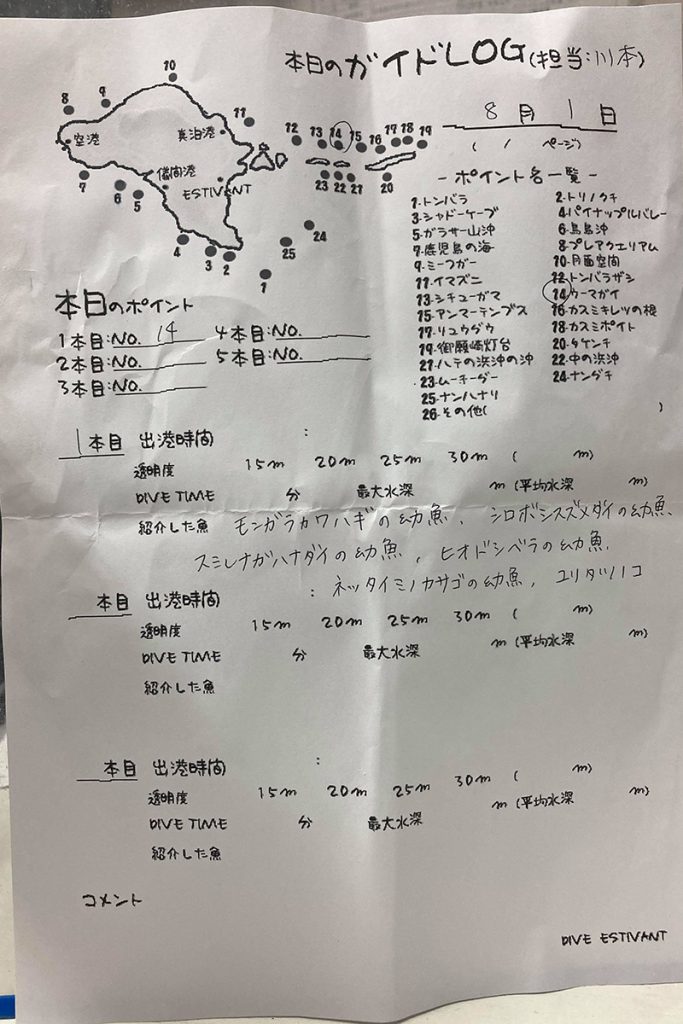 本日のガイドLOG(担当:川本)
8月1日
( / ページ)
10
8 9
11
空港
真泊港
12 13 14 15 16 17 18 19
7 6 5
儀間港
ESTIVANT
23 22 21 20
4 3 2
24
25
1
- ポイント名一覧 -
1.トンバラ 2.トリノクチ
3.シャドーケーブ 4.パイナップルバレー
5.ガラサー山沖 6.鳥島沖
7.鹿児島の海 8.プレアクエリアム
9.ミーフガー 10.月面空間
11.イマズニ 12.トンバラザシ
13.シチューガマ 14.ウーマガイ
15.アンマーテンプス 16.カスミキレツの根
17.リュウグウ 18.カスミポイト
19.御願崎灯台 20.タケンチ
21.ハテの浜沖の沖 22.中の浜沖
23.ムーチーグー 24.ナングチ
25.ナンハナリ
26.その他( )
本日のポイント
1本目:NO. 14 4本目:NO.
2本目:NO. 5本目:NO.
3本目:NO.
1本目 出港時間 :
透明度 15m 20m 25m 30m ( m)
DIVE TIME 分 最大水深 m (平均水深 m)
紹介した魚 モンガラカワハギの幼魚、シロボシスズメダイの幼魚
スミレナガハナダイの幼魚、ヒオドシベラの幼魚
ネッタイミノカサゴの幼魚、ユリタツノコ
本目 出港時間 :
透明度 15m 20m 25m 30m ( m)
DIVE TIME 分 最大水深 m (平均水深 m)
紹介した魚
本目 出港時間 :
透明度 15m 20m 25m 30m ( m)
DIVE TIME 分 最大水深 m (平均水深 m)
紹介した魚
コメント
DIVE ESTIVANT